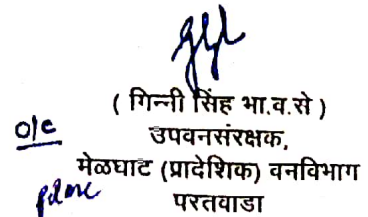 ( गिन्नी सिंह भा.व.से )
o/c
उपवनसंरक्षक,
मेळघाट (प्रादेशिक) वनविभाग
परतवाडा